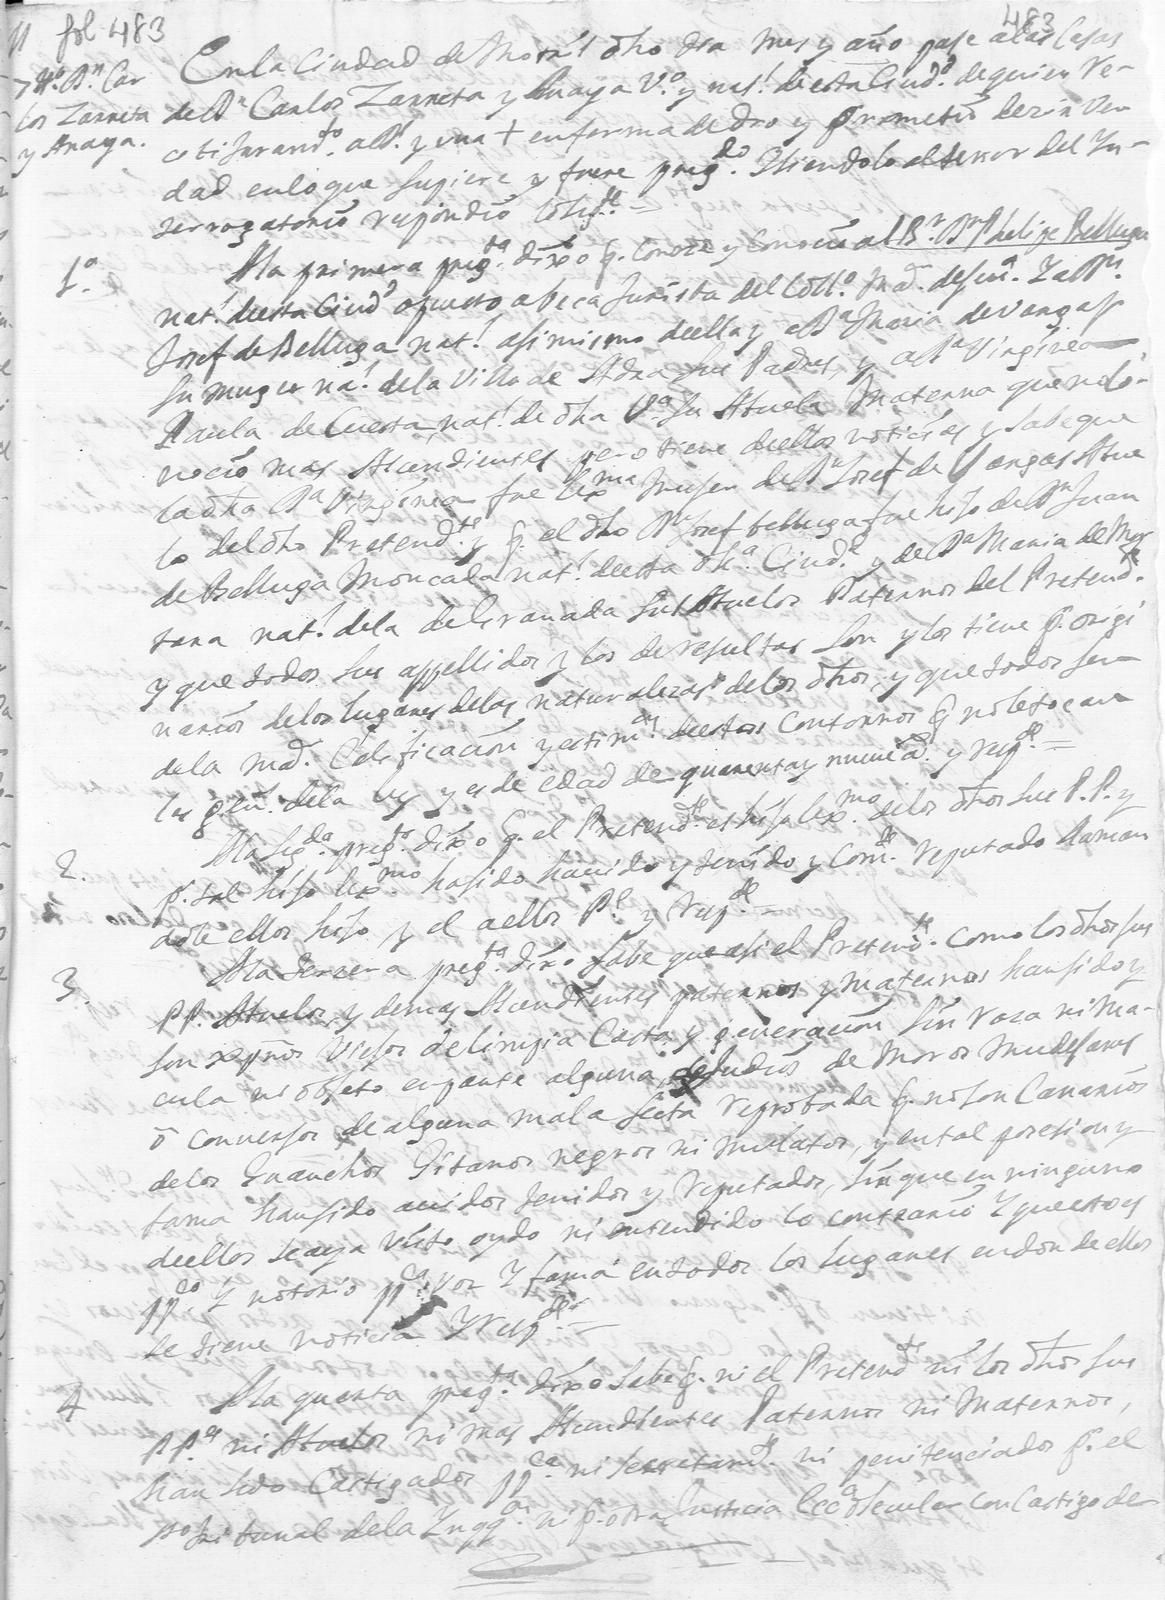 fol. 483
483
En la Ciudad de Motril dho dia mes y año pase a las Casas
7 tº. Dn. Car
los Zarreta
y Anaya.
de Dn Carlos Zarreta y Anaya Vº. y natl. de esta Ciud. de quien Re-
civi Juramto. a Ds. y una + enforma de dro y prometió dezir Ver
dad en lo que supiere y fuere pregdo. I siendolo al tenor del In-
terrogatorio respondio lo sigte. =
1º.
Ala primera pregta. dixo q. conoze y conocio al Br. Dn Phelipe Belluga
natl. de esta Ciud opuesto a beca Jurista del Collº. Ma. de Sra. I a Dn.
Josef de Belluga natl. asi mismo de ella y a Da Maria de Vargas
su muger nal. de la Villa de Adra sus Padres, y a Da Virginea
Paula de Cuesta, natl. de dha Va. su Abuela Materna que no co-
nocio mas Ascendientes pero tiene de ellos noticias y sabe que
la dha Da Virginea fue lexma muger de Dn Josef de Vargas Abue
lo del dho Pretendte. y q. el dho Dn Josef Belluga fue hijo de Dn Juan
de Belluga Moncada natl. de esta dha. Ciud. y de Da Maria de Mer
tana natl. dela de Granada sus Abuelos Paternos del Pretendte.
y que todos sus appellidos y los de resultas son y los tiene p. origi
narios de los lugares de las naturalezas de los dhos, y que todos son
de la ma. Calificacion y estimon de estos contornos q no le tocan
las gen. dela ley y es de edad de quarenta y nueve a. y respde. =
2.
Ala segda. pregta. dixo q. el Pretendte. es hijo lexmo. de los dhos sus P.P. y
p. tal hijo lexmo ha sido havido y tenido y comte. reputado llaman
dole ellos hijo y el a ellos Ps. y respde. =
3.
Ala tercera pregta. dixo sabe que asi el Pretendte. como los dhos sus
PP. Abuelos, y demas Ascendientes paternos y maternos han sido y
son xpnos Viejos de limpia Casta y generacion sin raza ni ma-
cula ni objeto en parte alguna, de Judios de Moros Mudejares
o conversos de alguna mala secta reprobada q. no son Canarios
de los Guanchos Gitanos negros ni mulatos, y en tal posesion y
fama han sido avidos tenidos y reputados, sin que en ninguno
de ellos se aya visto oydo ni entendido lo contrario I que esto es
ppco. y notorio ppca. voz y fama en todos los lugares en donde ellos
se tiene noticia y respde. =
4
Ala quarta pregta. dixo sabe q. ni el Pretendte ni los dhos sus
PPes ni Abuelos ni mas Ascendientes Paternos ni Maternos,
han sido Castigados ppca ni secretamte. ni penitenciados p. el
sto tribunal dela Inqqon. ni p. otra Justicia Ecca o Secular con Castigo de